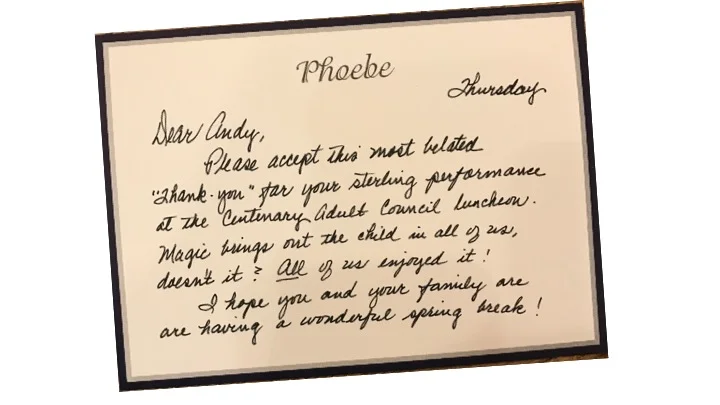 Phoebe
Thursday
Dear Andy,
Please accept this most belated
"Thank-you" for your sterling performance
at the Centenary Adult Council luncheon.
Magic brings out the child in all of us,
doesn't it? All of us enjoyed it!
I hope you and your family are
are having a wonderful spring break!